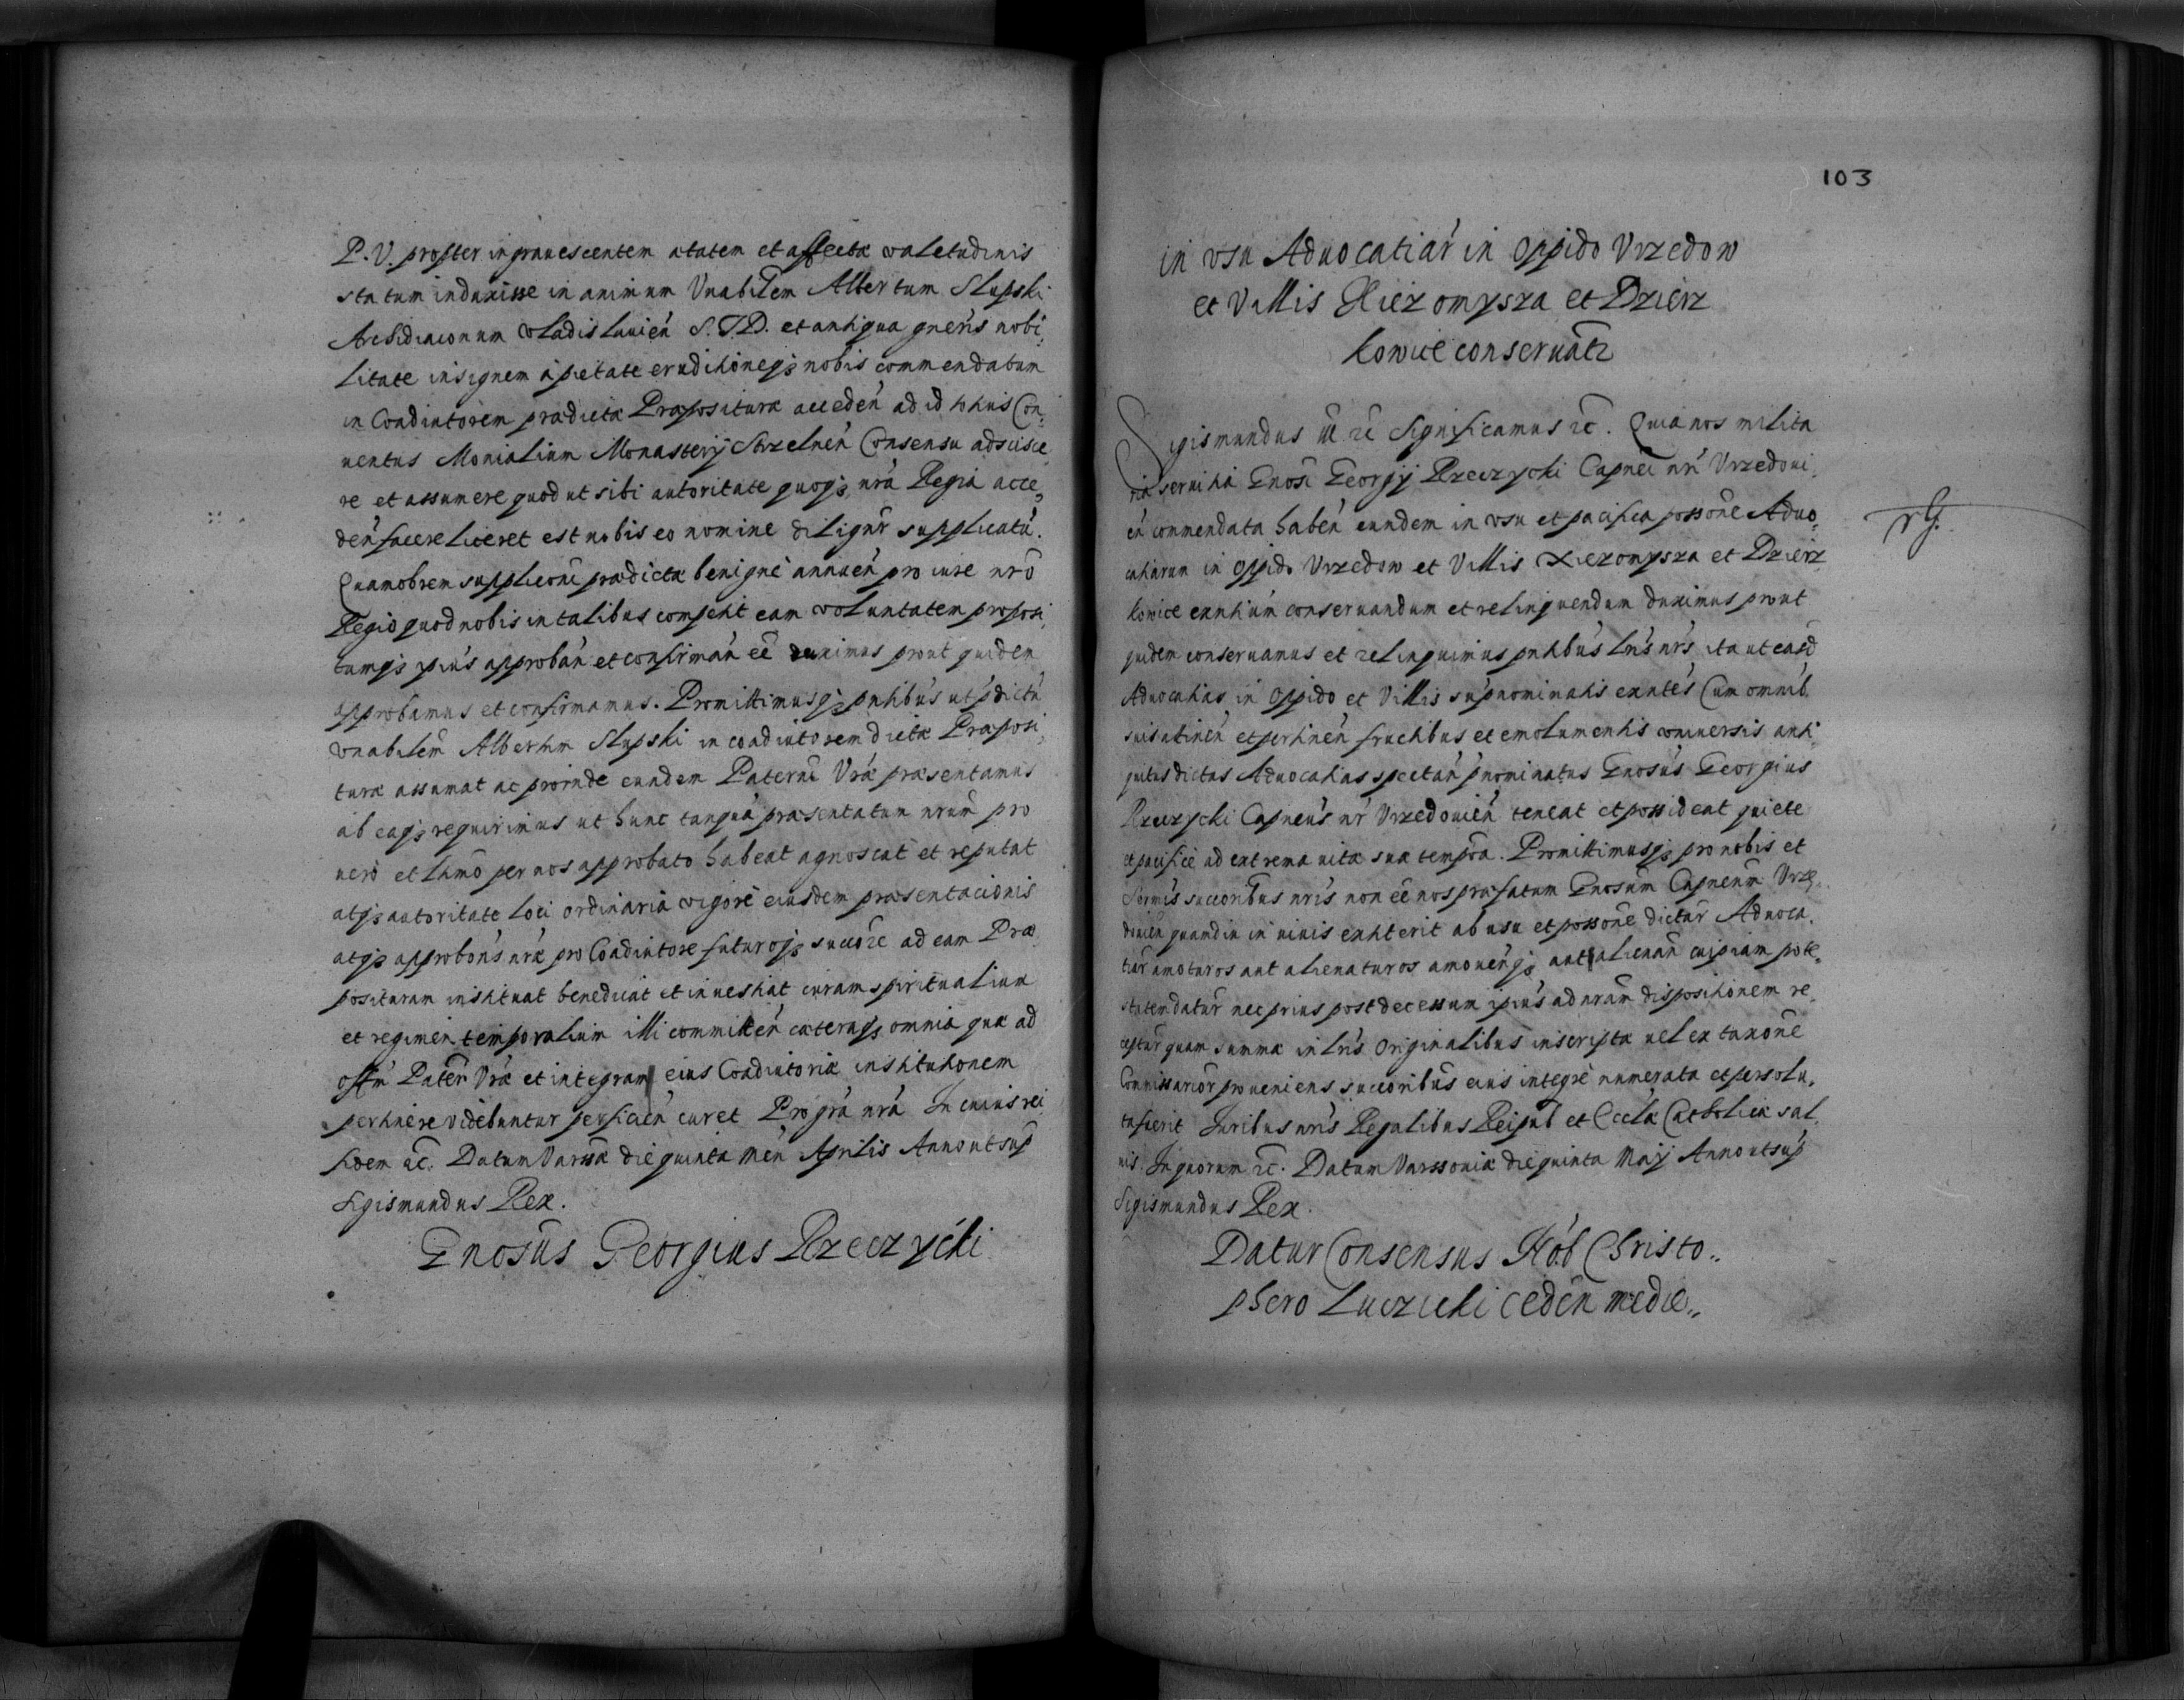 P. V. propter ingravescentem ætatem et affectæ valetudinis
statum induxisse in animum Vnabilem Albertum Slupski
Archidiaconum Vladislavień S. T. D. et antiqua gneris nobi„
litate insignem à pietate eruditioneq; nobis commendatum
in Coadiutorem prædictæ Præposituræ acceden̄ ad id totius Con„
uentus Monialium Monasterij Strzelneń Consensu adscisce
re et assumere quod ut sibi autoritate quoq; nrã Regia acce„
deń facere liceret est nobis eo nomine diligǹr supplicatũ.
Quamobrem supplicõni prædictæ benignè annueń pro iure nrõ
Regio quod nobis in talibus competit eam voluntatem proposi„
tumq; ipiùs approbań et confirmań eẽ duximus prout quidem
approbamus et confirmamus. Promittimusq; pntibùs ut pdictũ
vnabilem̃ Albertum Slupski in coadiutorem dictæ Præposi„
turæ assumat ac proinde eundem Paternĩ Vræ præsentamus
ab eaq; requirimus ut hunc tanquã præsentatum nrum̃ pro
uero et ltimõ per nos approbato habeat agnoscat et reputat
atq; autoritate loci ordinaria vigorè eiusdem præsentacionis
atq; approbonìs nræ pro Coadiutore futuroq; succõre ad eam Præ
posituram instituat benedicat et inuestiat curam spiritualium
et regimen temporalium illi committeń cæteraq; omnia quæ ad
offm̃ Pater̃n Vræ et integram eius Coadiutoriæ institutionem
pertinere videbuntur perficień curet Pro grã nrã In cuius rei
fidem ac̃. Datum Varsæ die quinta Meń Aprilis Anno ut sup̃
Sigismundus Rex.
Gnosũs Georgius Rzeczycki
103
in vsu Aduocatiar̃ in Oppido Vrzedow
et Villis Xiezomysza et Dzierz
kowice conseruatr̃
Sigismundus III rc̃ Significamus rc̃. Quia nos milita
ria seruitia Gnosi Georgij Rzeczycki Capneĩ nrĩ Vrzedoui„
eń commendata habeń eundem in vsu et pacifica possõne Aduo„
catiarum in Oppido Vrzedow et Villis Xiezomysza et Dzierz
kowice exntium̃ conseruandum et relinquendum duximus prout
quidem conseruamus et relinquimus pntibùs lrĩs nrĩs ita ut easd̃
Aduocatias in Oppido et Villis sup̃nominatis exntes̃ Cum omnib.
suis attineń et pertineń fructibus et emolumentis vniuersis anti„
quitus dictas Aduocatias spectań p̃nominatus Gnosùs Georgius
Rzeczycki Capneùs nr̃ Vrzedouień teneat et possideat quiete
et pacificè ad extrema uitæ suæ tempõra. Promittimusq; pro nobis et
Sermĩs succoribùs nrĩs non eẽ nos præfatum Gnosum̃ Capneum̃ Vrze„
douień quamdiu in uiuis extiterit ab usu et possõne dictar̃ Aduoca„
tiar̃ amoturos aut alienaturos amouendq; aut alienań cuipiam pote„
statem daturõs nec prius post decessum ipiùs ad nram̃ dispositionem re„
ceptur̃ quam summa in lrĩs Originalibus inscripta uel ex taxõne
Commissarior̃ proueniens succoribùs eius integrè numerata et persolu„
ta fuerit Iuribus nrĩs Regalibus Reipub̃ et Ecclæ Catholicæ sal„
uis. In quorum rc̃. Datum Varssouiæ die quinta Maij Anno ut sup̃
Sigismundus Rex.
Datur Consensus Nob̃ Christo„
phero Luczicki cedeń medie„